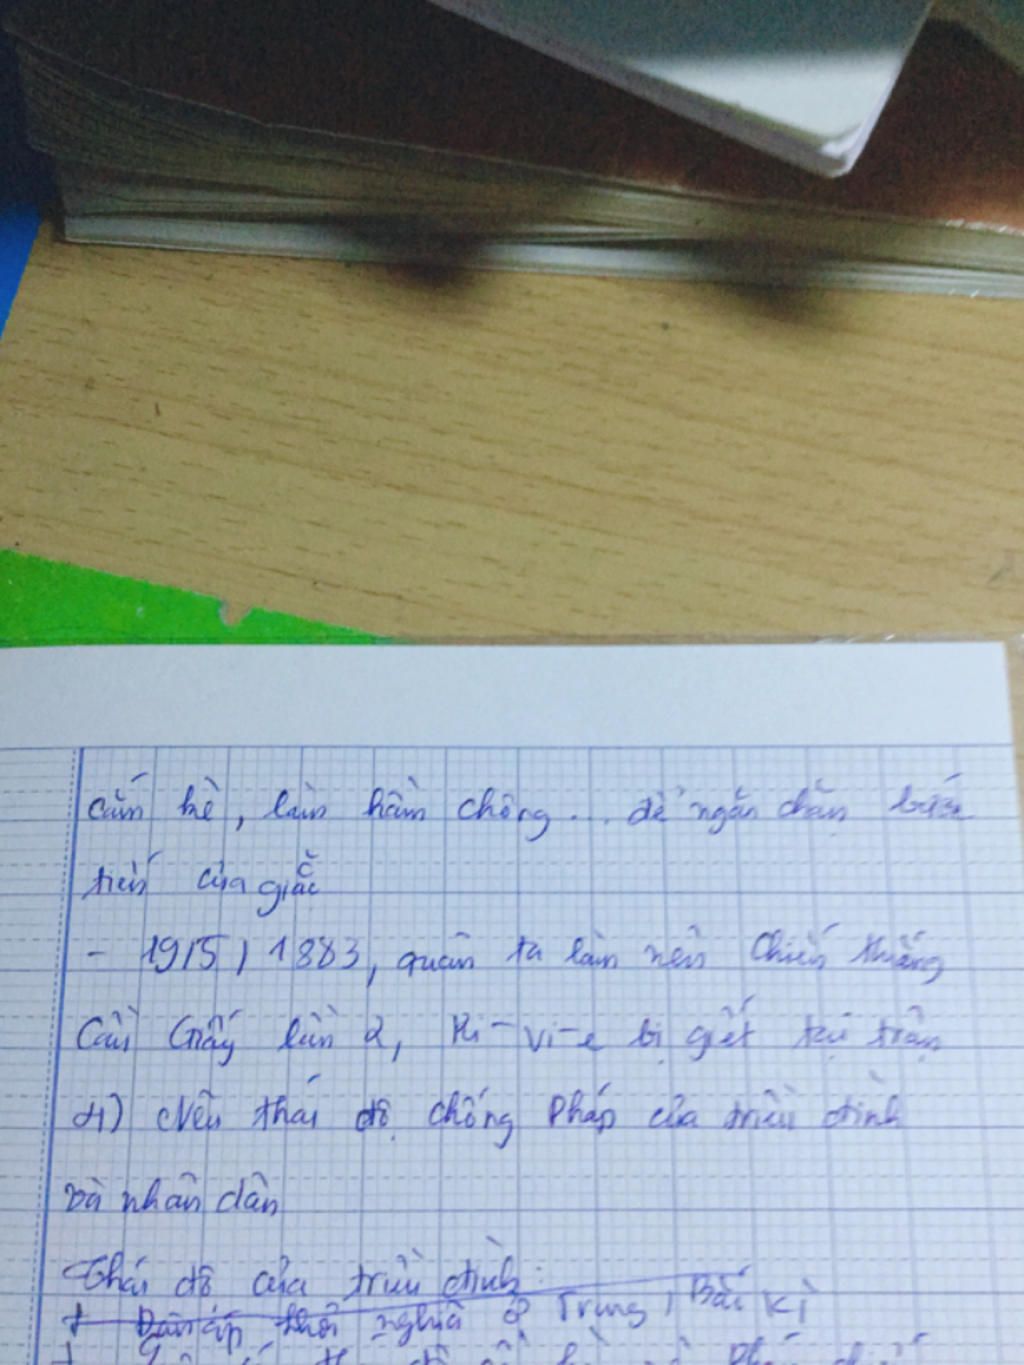 cắm kè, làm hầm chông... để ngăn chặn bước
tiến của giặc
- 1915, 1883, quân ta làm nên Chiến thắng
Cầu Giấy lần 2, Ri-vi-e bị giết tại trận
4) Nêu thái độ chống Pháp của triều đình
và nhân dân
Thái độ của triều đình:
+ Đàn áp khởi nghĩa ở Trung, Bắc Kì